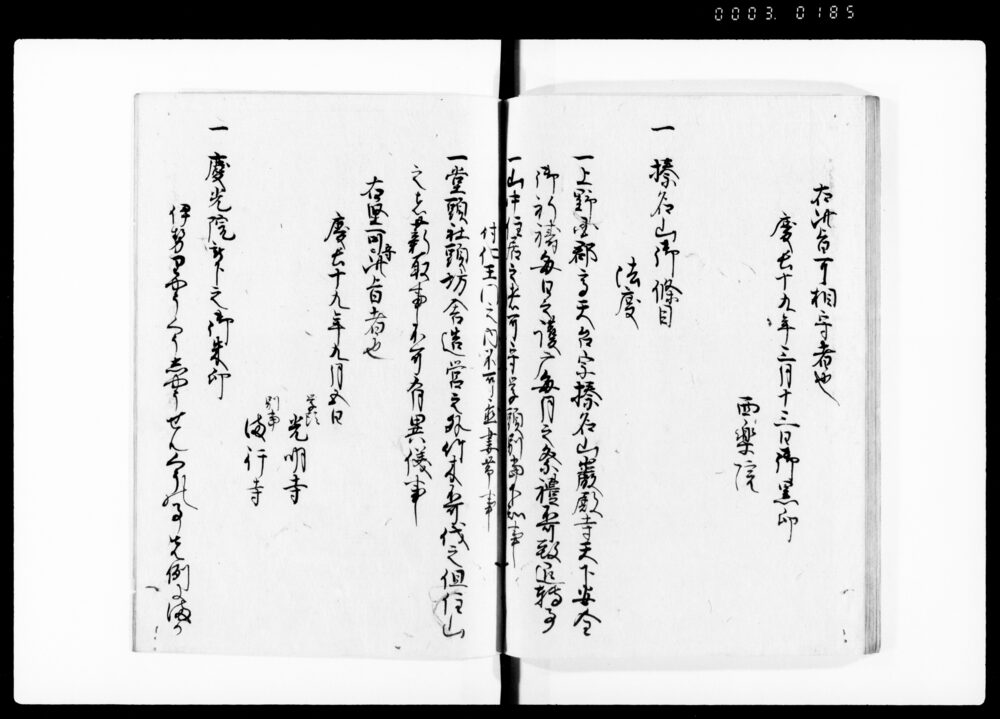 0003. 0185
右此旨可相守者也
慶長十九年三月十三日御黒印
西楽院
一 榛名山御條目
法度
一上野国群馬天台宗榛名山巖殿寺天下安全
御祈禱毎日之護摩毎月之祭禮不可致退轉事
一山中住居之者可守学頭別当下知事
付仁王門之内不可妻帯事
一堂頭社頭坊舎造営之外竹木不可伐之但住山
之者薪取事不可有異儀事
右堅可守此旨者也
慶長十九年九月五日
学頭 光明寺
別当 満行寺
一 慶光院被下之御朱印
伊勢 せんくうの事先例